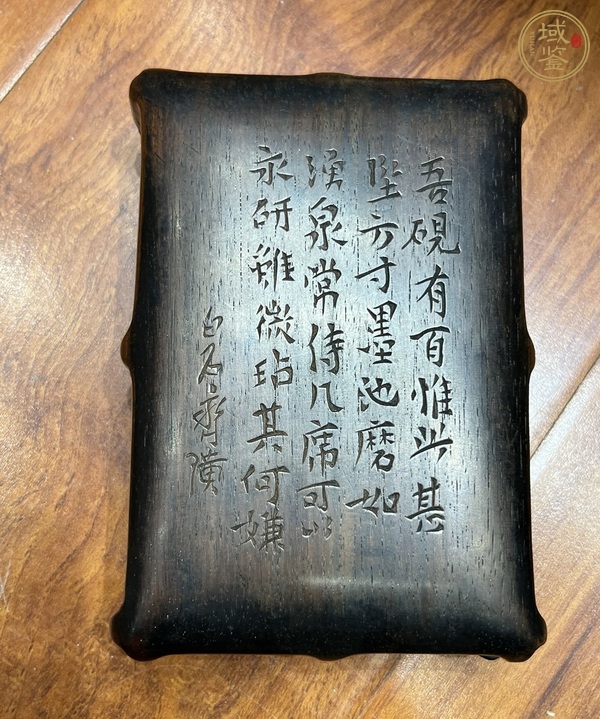 吾硯有百惟此甚
堅方寸墨池磨如
湧泉常侍几席可以
永研雖微玷其何嫌
白石齊璜
域鉴